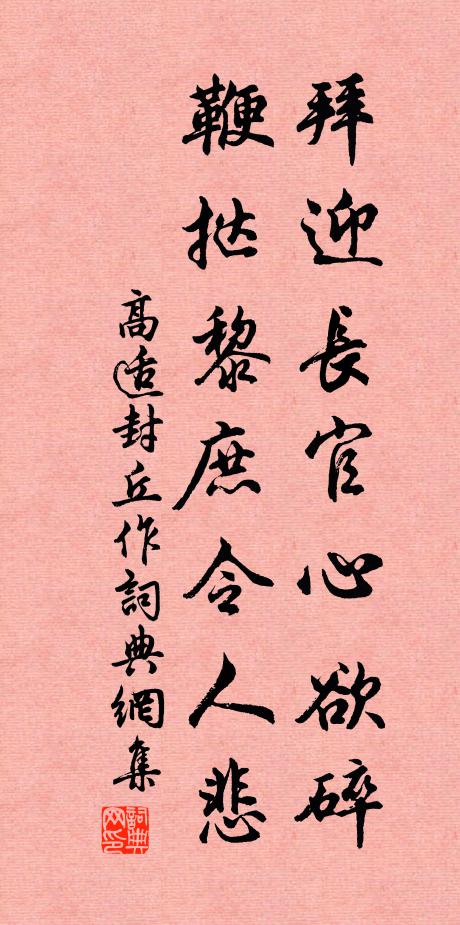 拜迎長官心欲碎
鞭撻黎庶令人悲
高适封丘作詞典網集
詞典网印